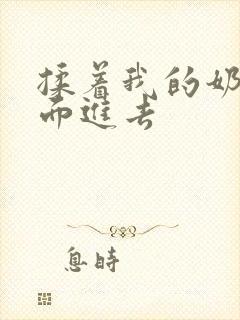 揉着我的奶
而進去
息時